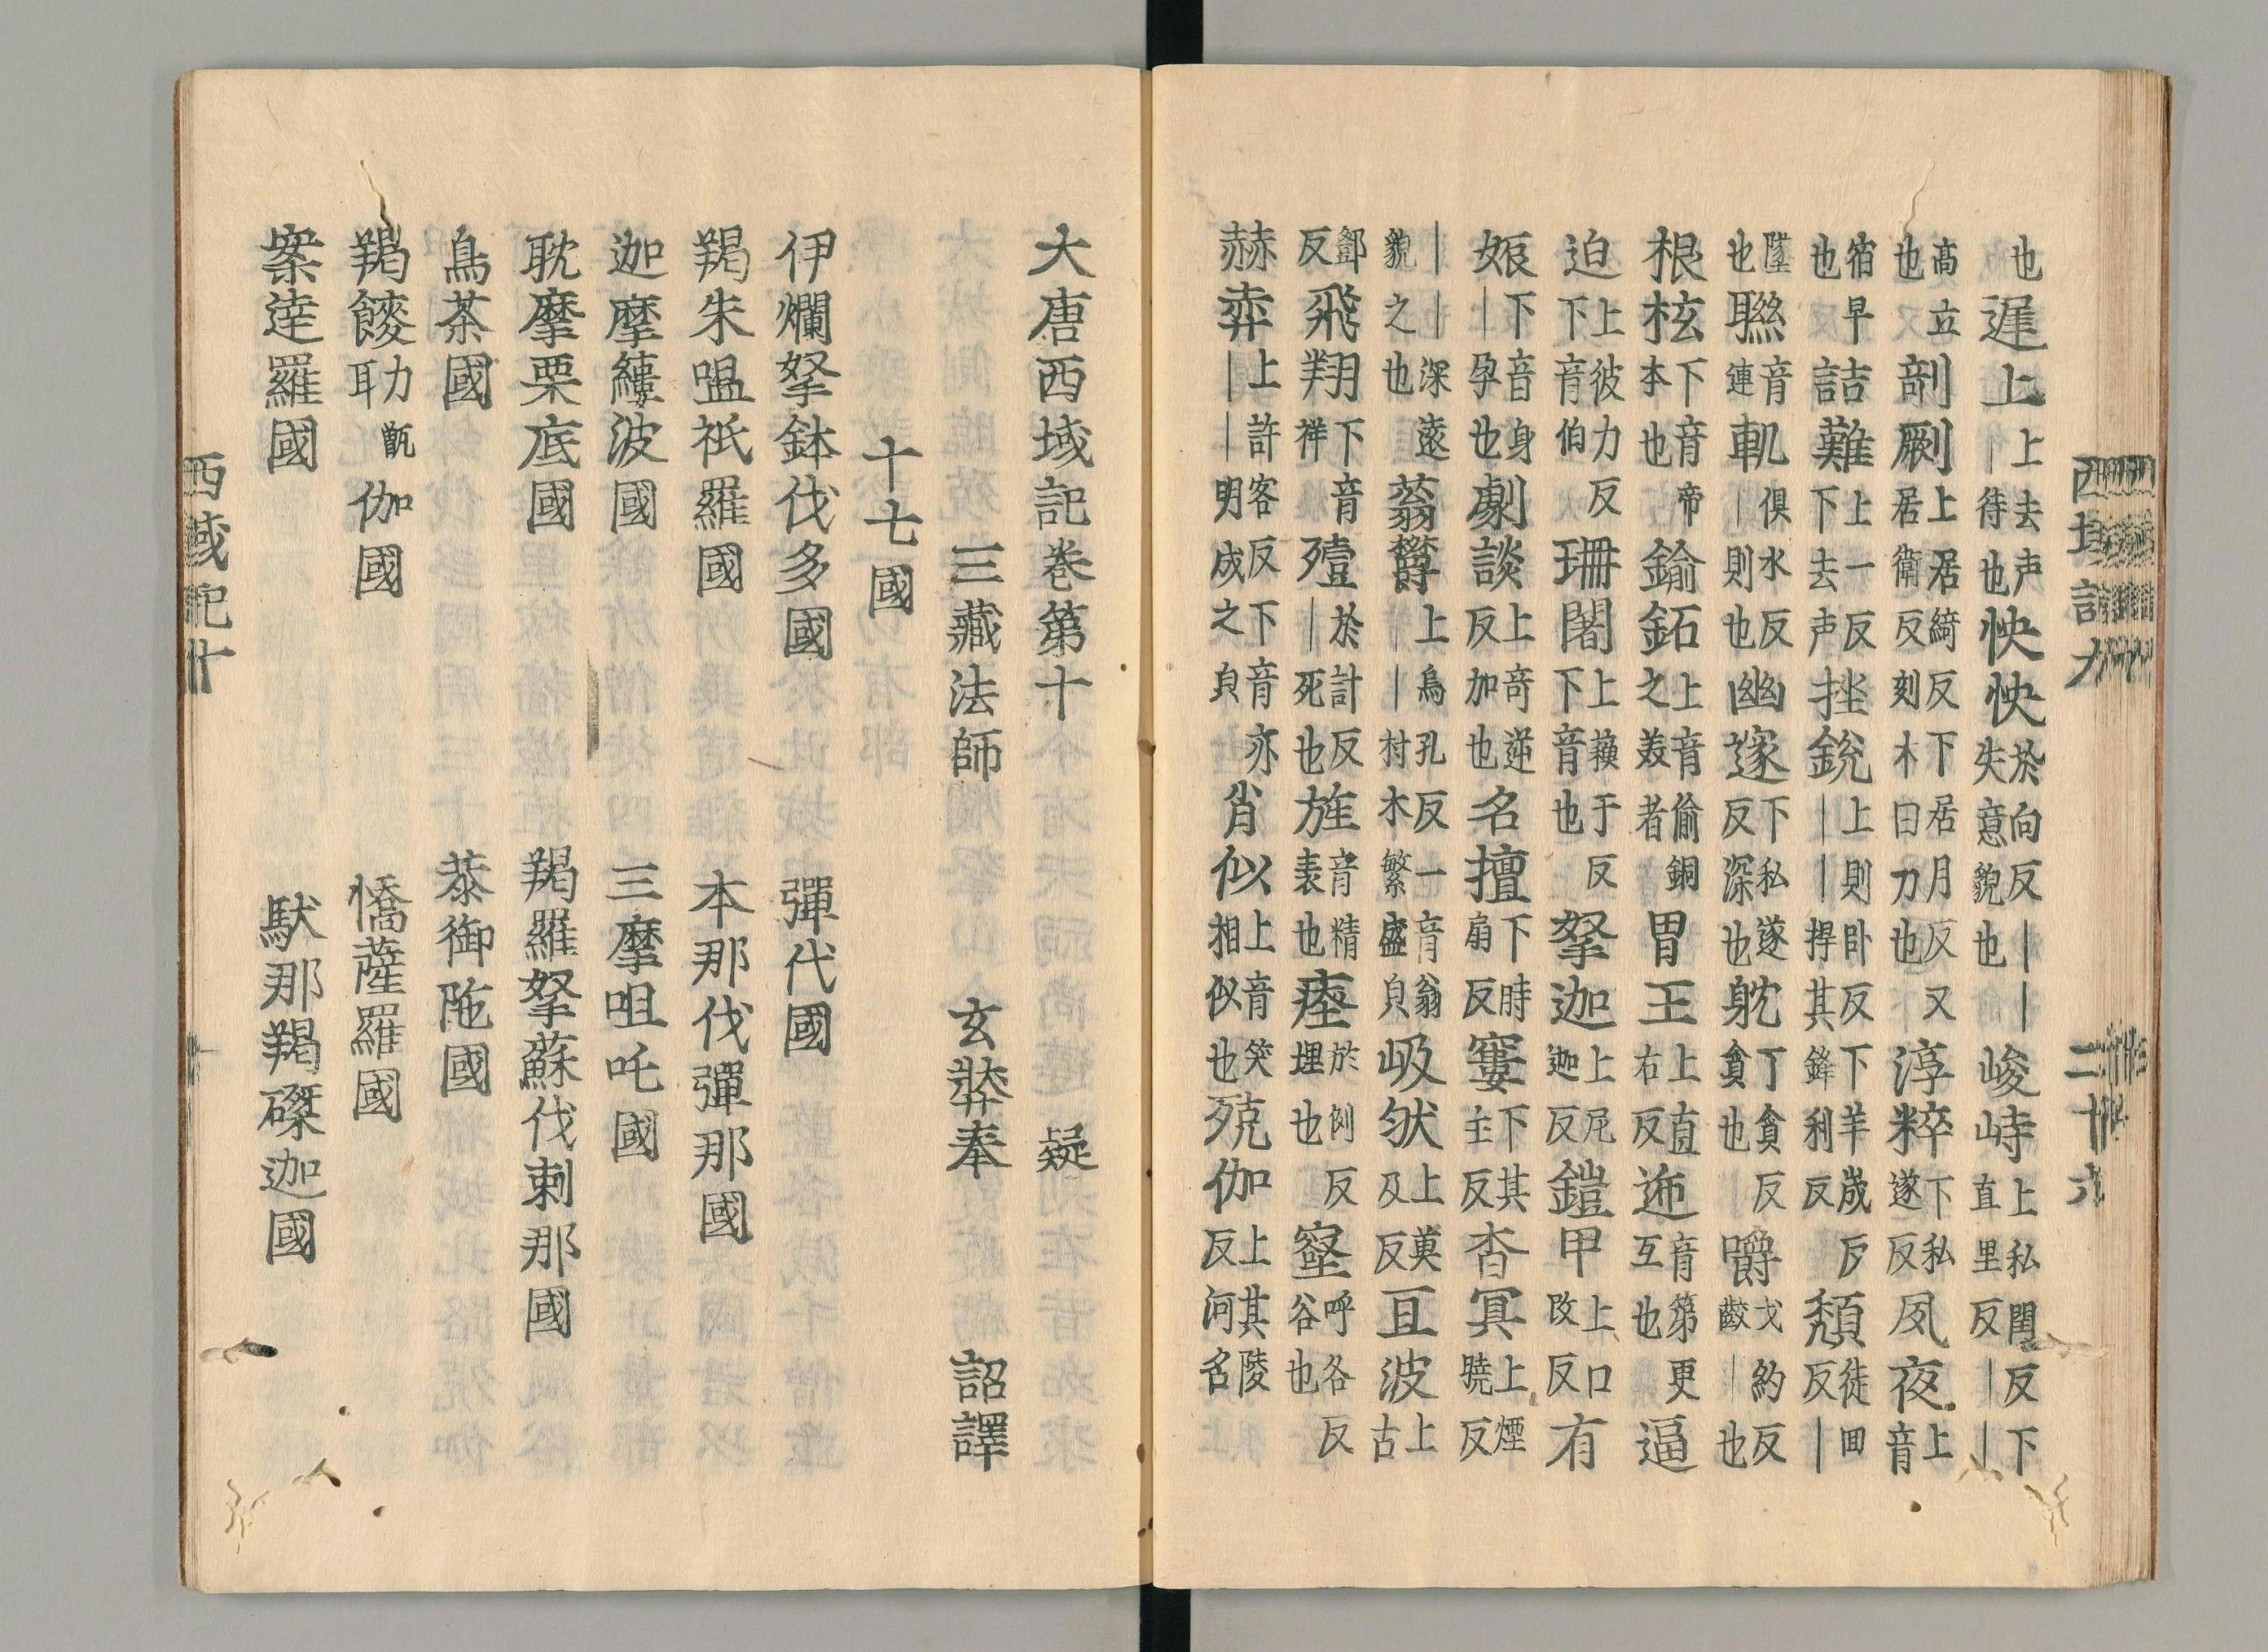 西域記九 二十六
也遅上上去声｜待也怏怏於向反｜｜失意貌也峻峙上私閏反下直里反｜｜
高立也剞劂上居綺反下居月反又居衛反刻木曰刀也淳粹下私遂反夙夜上音
宿早也詰難上一反下去声挫銳上則卧反下羊歲反｜｜捍其鋒利反頽徒回反｜
墜也聮音連軋俱水反｜則也幽邃下私遂反深也躭丁貪反貪也嚼戈約反齩｜也
根柢下音帝本也鍮鉐上音偷銅之美者胃王上直右反迊音第更互也逼
迫上彼力反下音伯珊闍上蘓于反下音也拏迦上尼迦反鎧甲上口改反有
娠下音身｜孕也劇談上竒逆反加也名擅下時扇反窶下其主反杳冥上煙曉反
｜｜深遠貌之也蓊欝上烏孔反一音翁｜村木繁盛皃岋然上莫及反亘波上古
鄧反飛翔下音祥殪於計反｜死也旌音精表也瘞於例反埋也壑呼各反谷也
赫弈上許客反下音亦｜｜明成之皃肖似上音笑相似也殑伽上其陵反河名
大唐西域記卷第十 疑
三藏法師 玄奘奉 詔譯
十七國
伊爛拏鉢伐多國 彈代國
羯朱嗢祇羅國 本那伐彈那國
迦摩縷波國 三摩呾吒國
耽摩栗底國 羯羅拏蘇伐剌那國
烏茶國 恭御陁國
羯䬆力甑耴伽國 憍薩羅國
案逹羅國 馱那羯磔迦國
西域記十